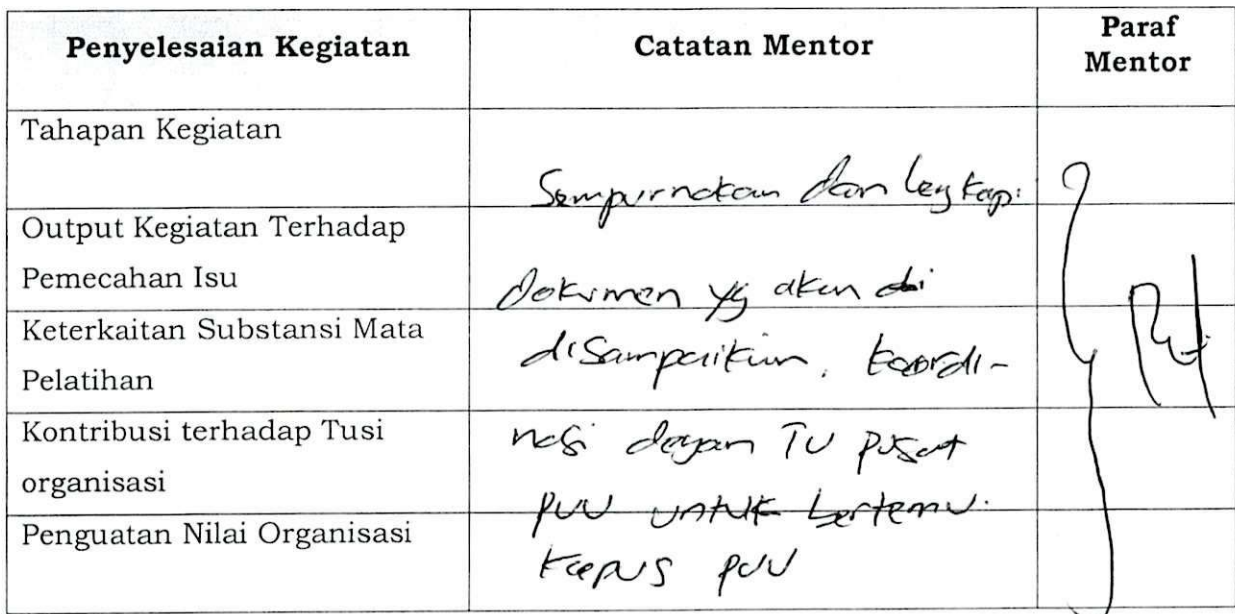 Penyelesaian Kegiatan
Catatan Mentor
Paraf
Mentor
Tahapan Kegiatan
Sempurnakan dan lengkapi
Output Kegiatan Terhadap
Pemecahan Isu
dokumen yg akan di
Keterkaitan Substansi Mata
Pelatihan
disampaikan, koordi-
Kontribusi terhadap Tusi
organisasi
nasi dengan TU pusat
PUU untuk bertemu
Penguatan Nilai Organisasi
Kapus PUU